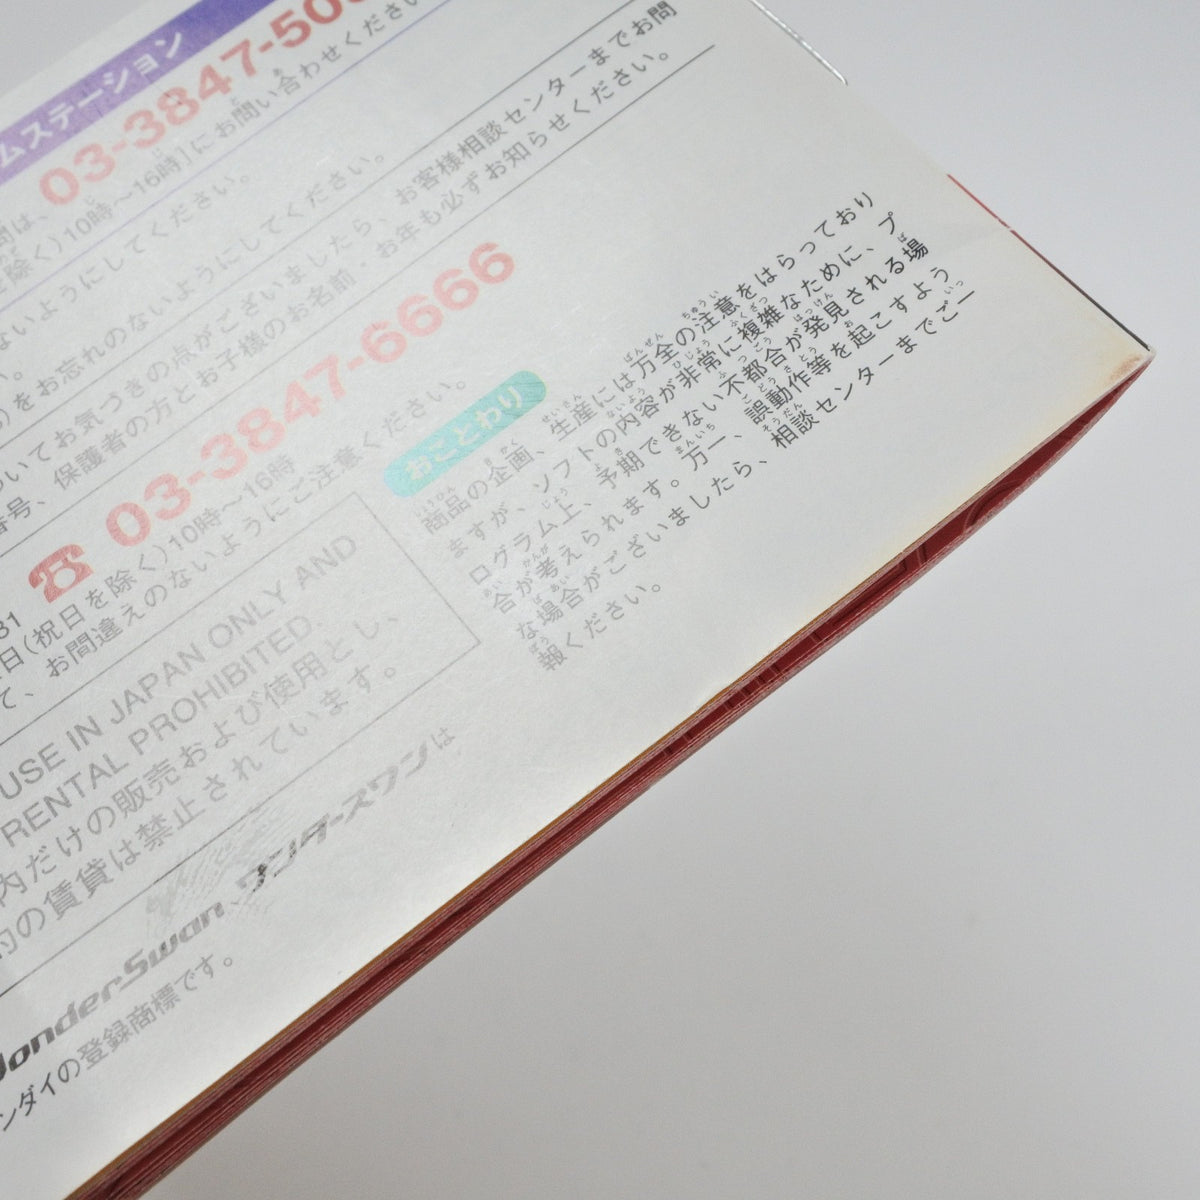 ムステーション
03-3847-50
除く)10時〜16時]にお問い合わせくださ
ないようにしてください。
をお忘れのないようにしてください。
ついてお気づきの点がございましたら、お客様相談センターまでお問
番号、保護者の方とお子様のお名前・お年も必ずお知らせください。
☎03-3847-6666
日(祝日を除く)10時〜16時
て、お間違えのないようにご注意ください。
USE IN JAPAN ONLY AND
RENTAL PROHIBITED.
内だけの販売および使用とし、
的の賃貸は禁止されています。
おことわり
商品の企画、生産には万全の注意をはらっており
ますが、ソフトの内容が非常に複雑なために、プ
ログラム上、予期できない不都合が発見される場
合が考えられます。万一、誤動作等を起こすよう
な場合がございましたら、相談センターまでご一
報ください。
WonderSwan、ワンダースワンは
ンダイの登録商標です。